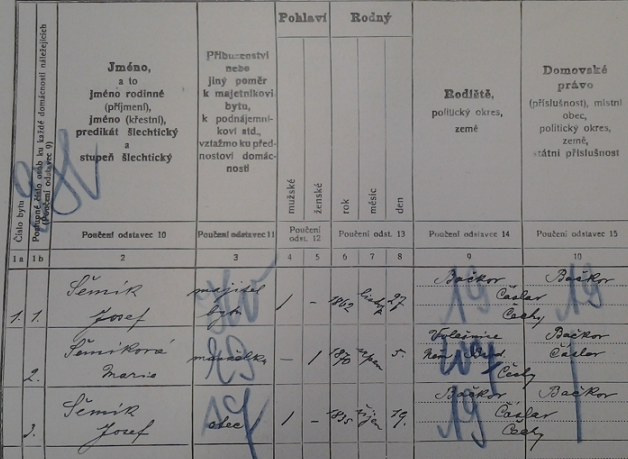 Číslo bytu
Postupné číslo osob ku každé domácnosti náležejících
(Poučení odstavec 9)
Jméno,
a to
jméno rodinné
(příjmení),
jméno (křestní),
predikát šlechtický
a
stupeň šlechtický
Příbuzenství
nebo
jiný poměr
k majetníkovi
bytu,
k podnájemní-
kovi atd.,
vztažmo ku před-
nostovi domác-
nosti
Pohlaví
mužské
ženské
Rodný
rok
měsíc
den
Rodiště,
politický okres,
země
Domovské
právo
(příslušnost), místní
obec,
politický okres,
země,
státní příslušnost
Poučení odstavec 10
Poučení odstavec 11
Poučení
odst. 12
Poučení
odst. 13
Poučení odstavec 14
Poučení odstavec 15
1 a 1 b 2 3 4 5 6 7 8 9 10
1. 1. Sěmík majitel 1 - 1862 27. Bačkov Bačkov
Josef bytu Čáslav
Čechy
2. Sěmíková manželka - 1 1870 srpen 5. Bačkov
Marie Čáslav
Čechy
3. Sěmík otec 1 - 1835 říjen 19. Bačkov Bačkov
Josef Čáslav
Čechy
19 19
19 19